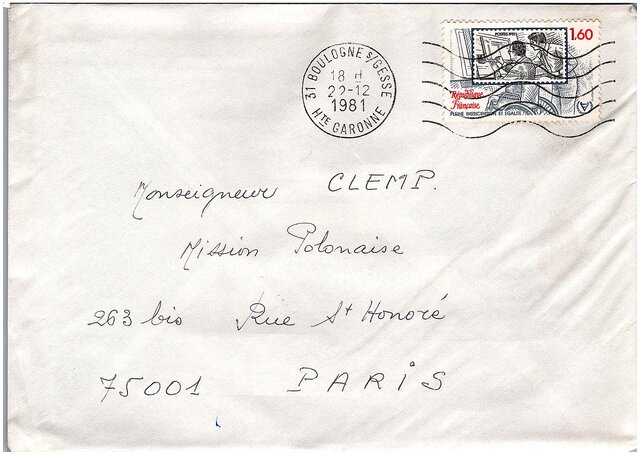 31 BOULOGNE S/GESSE
18 H
22-12
1981
HTE GARONNE
POSTES 1981
1.60
République
Française
PLEINE PARTICIPATION ET EGALITE
Monseigneur CLEMP.
Mission Polonaise
263 bis Rue St Honoré
75001 PARIS